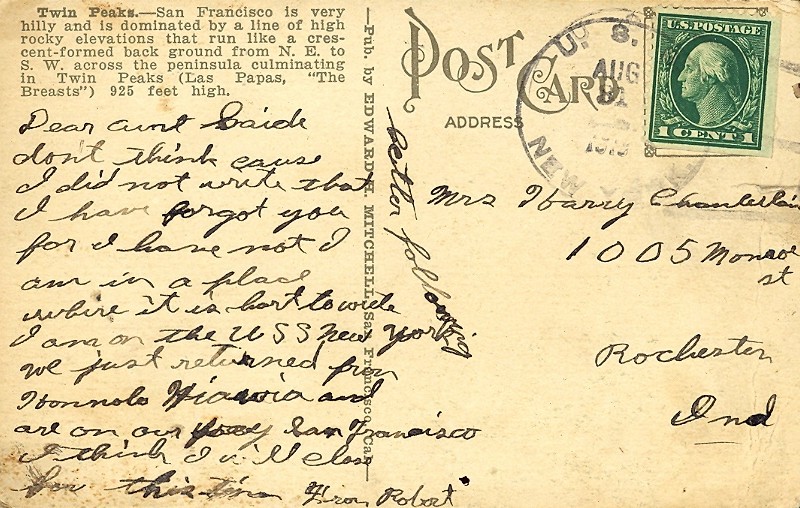 Twin Peaks.—San Francisco is very
hilly and is dominated by a line of high
rocky elevations that run like a cres-
cent-formed back ground from N. E. to
S. W. across the peninsula culminating
in Twin Peaks (Las Papas, "The
Breasts") 925 feet high.
Dear aunt Saide
don't think cause
I did not write that
I have forgot you
for I have not I
am in a place
where it is hort to wide
I am on the U S S New York
we just returned from
Honnolo Hiawia and
are on our way San Francisco
I think I will close
for this time From Robert
better following
—Pub. by EDWARD H. MITCHELL, San Francisco, Cal.—
POST CARD
ADDRESS
U. S.
AUG
1919
NEW YORK
U.S. POSTAGE
1 CENT 1
Mrs Harry Chamberlain
1005 Monroe
st
Rochester
Ind